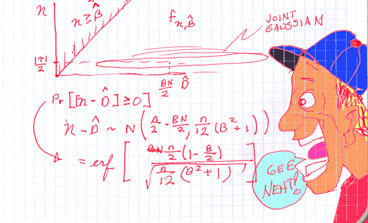 n
n ≥ B̂
f n, B̂
JOINT
GAUSSIAN
n+1/2
BN/2
D̂
Pr [n - D̂ ≥ 0]
n - D̂ ~ N (n/2 - BN/2, n/12 (B² + 1))
= erf [ n/2 (1 - B/2) / √(n/12 (B² + 1)) ]
GEE
NEHT!